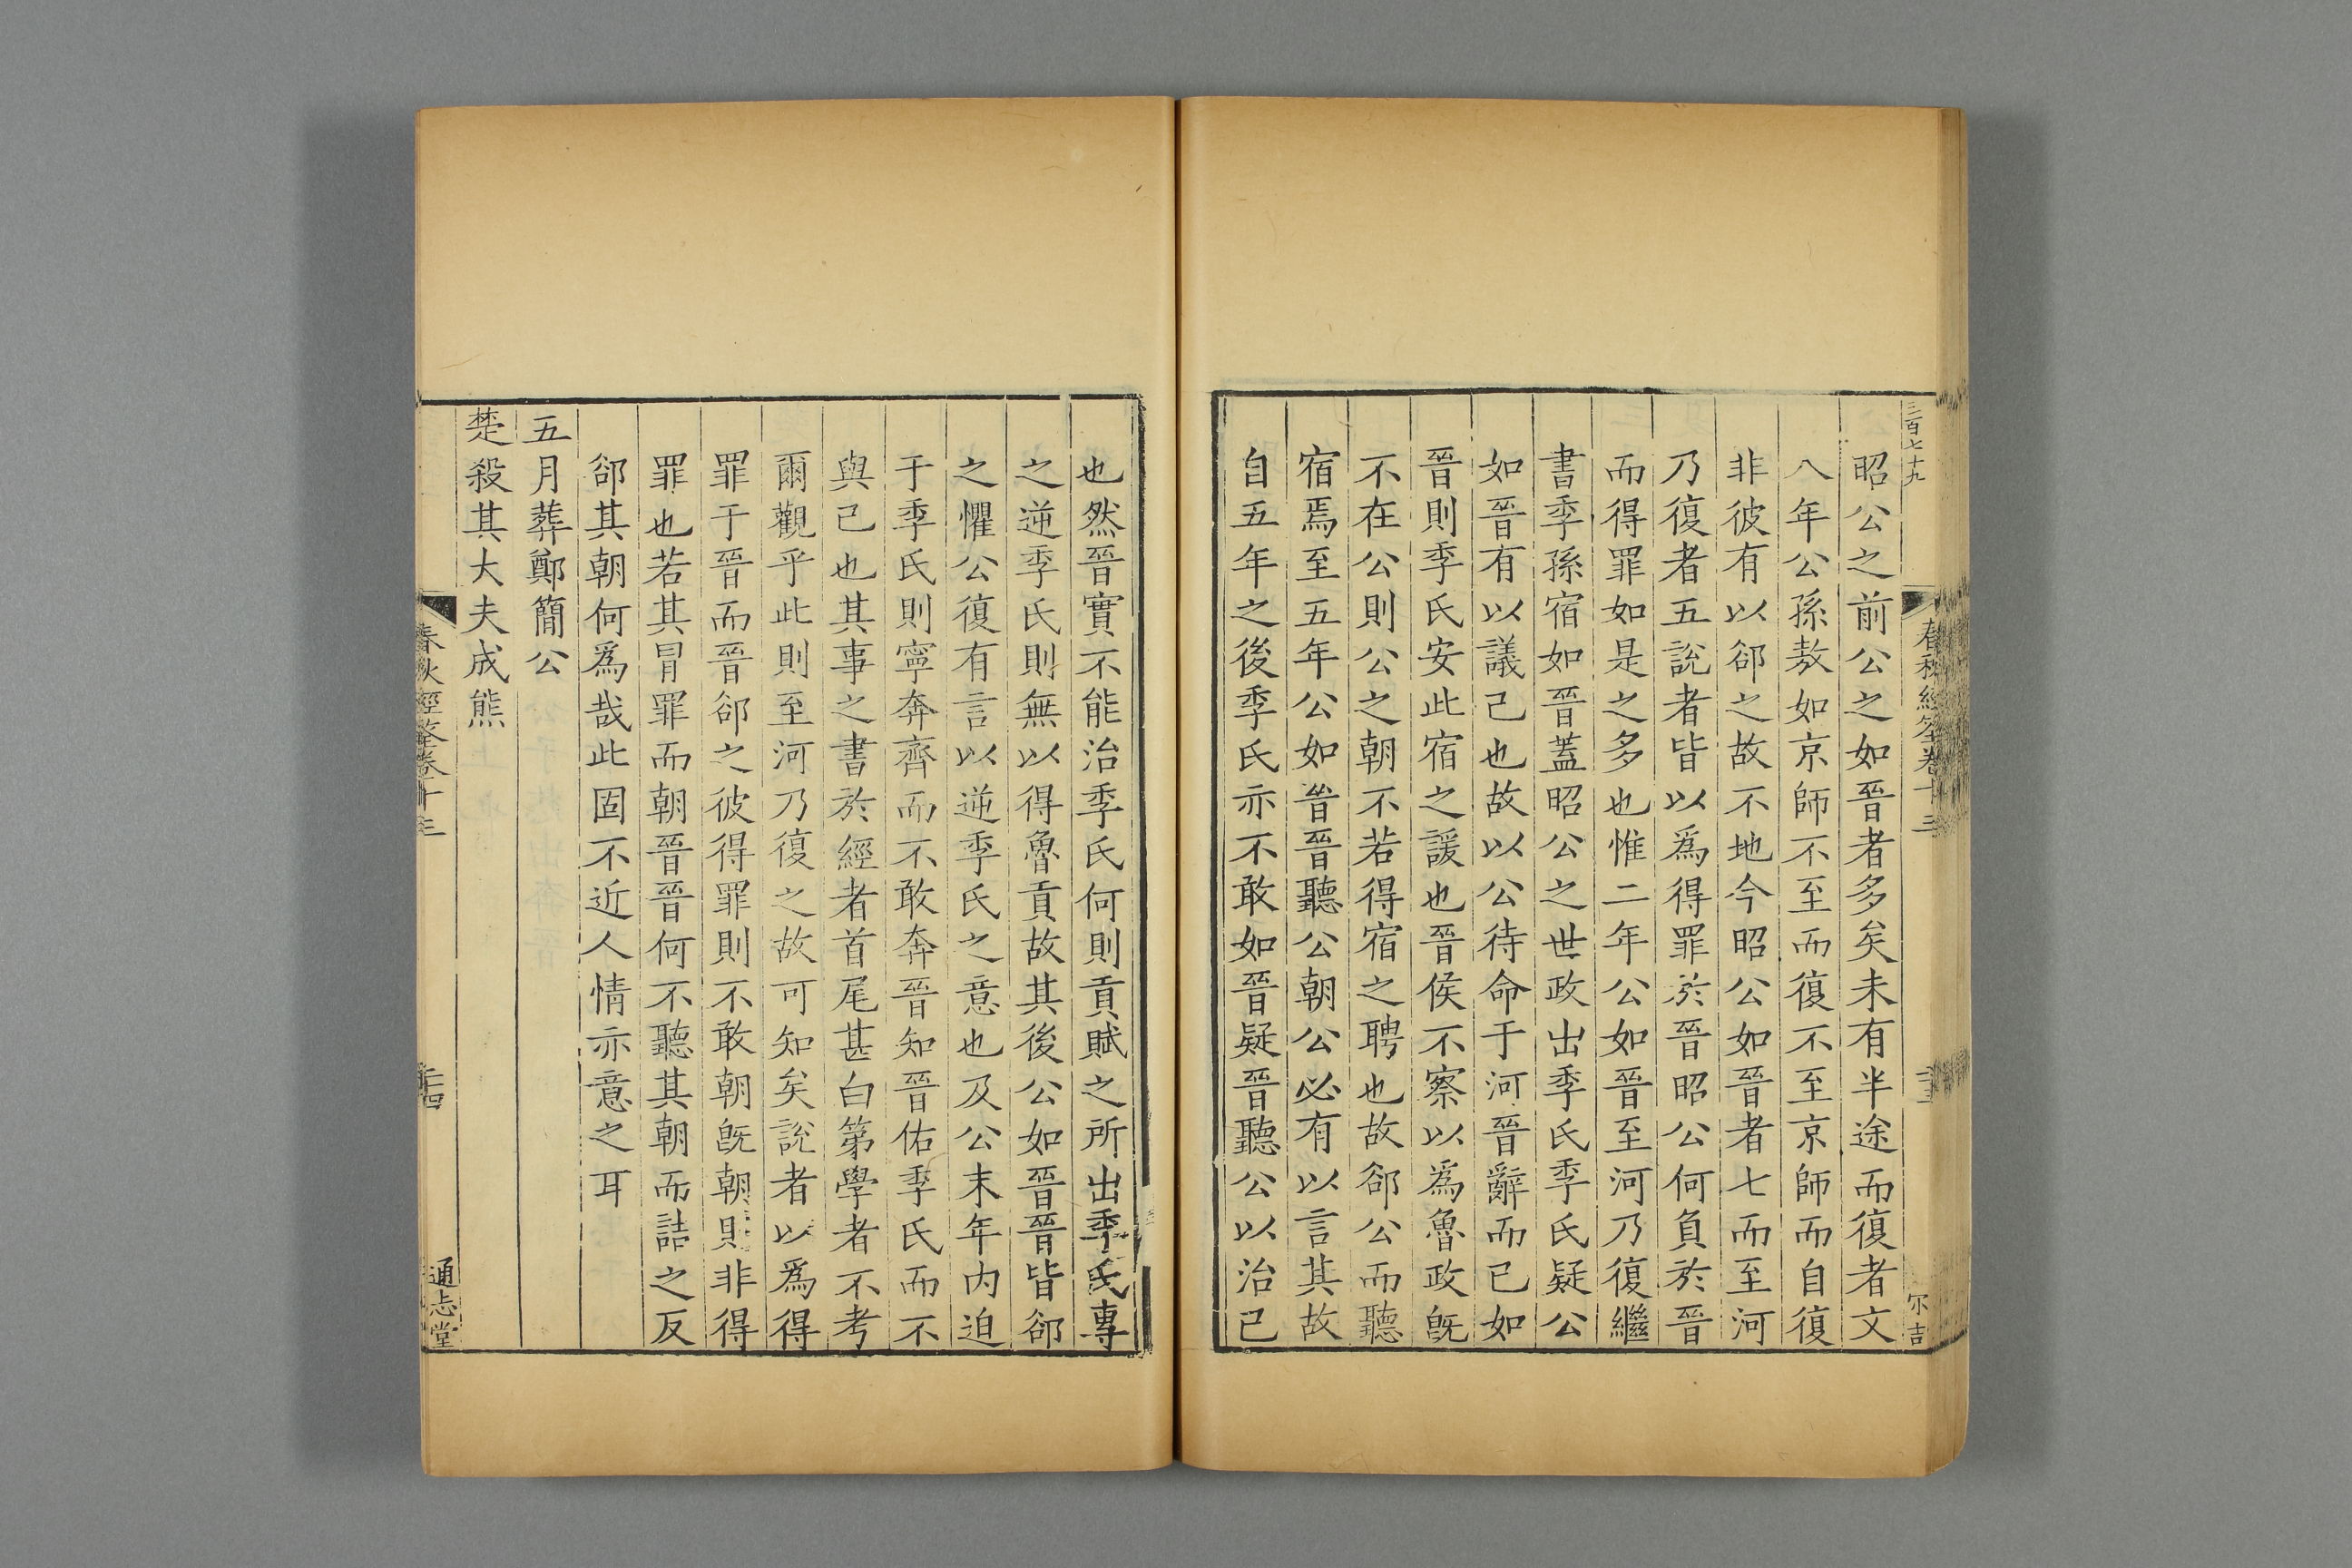 三百七十九
春秋經筌卷十三
尔吉
昭公之前公之如晉者多矣未有半途而復者文
八年公孫敖如京師不至而復不至京師而自復
非彼有以郤之故不地今昭公如晉者七而至河
乃復者五說者皆以爲得罪於晉昭公何負於晉
而得罪如是之多也惟二年公如晉至河乃復繼
書季孫宿如晉蓋昭公之世政出季氏季氏疑公
如晉有以議己也故以公待命于河晉辭而已如
晉則季氏安此宿之諼也晉侯不察以爲魯政旣
不在公則公之朝不若得宿之聘也故郤公而聽
宿焉至五年公如晉晉聽公朝公必有以言其故
自五年之後季氏亦不敢如晉疑晉聽公以治己
也然晉實不能治季氏何則貢賦之所出季氏專
之逆季氏則無以得魯貢故其後公如晉晉皆郤
之懼公復有言以逆季氏之意也及公末年內迫
于季氏則寧奔齊而不敢奔晉知晉佑季氏而不
與己也其事之書於經者首尾甚白第學者不考
爾觀乎此則至河乃復之故可知矣說者以爲得
罪于晉而晉郤之彼得罪則不敢朝旣朝則非得
罪也若其冒罪而朝晉晉何不聽其朝而詰之反
郤其朝何爲哉此固不近人情亦意之耳
五月葬鄭簡公
楚殺其大夫成熊
春秋經筌卷十三
二十四
通志堂